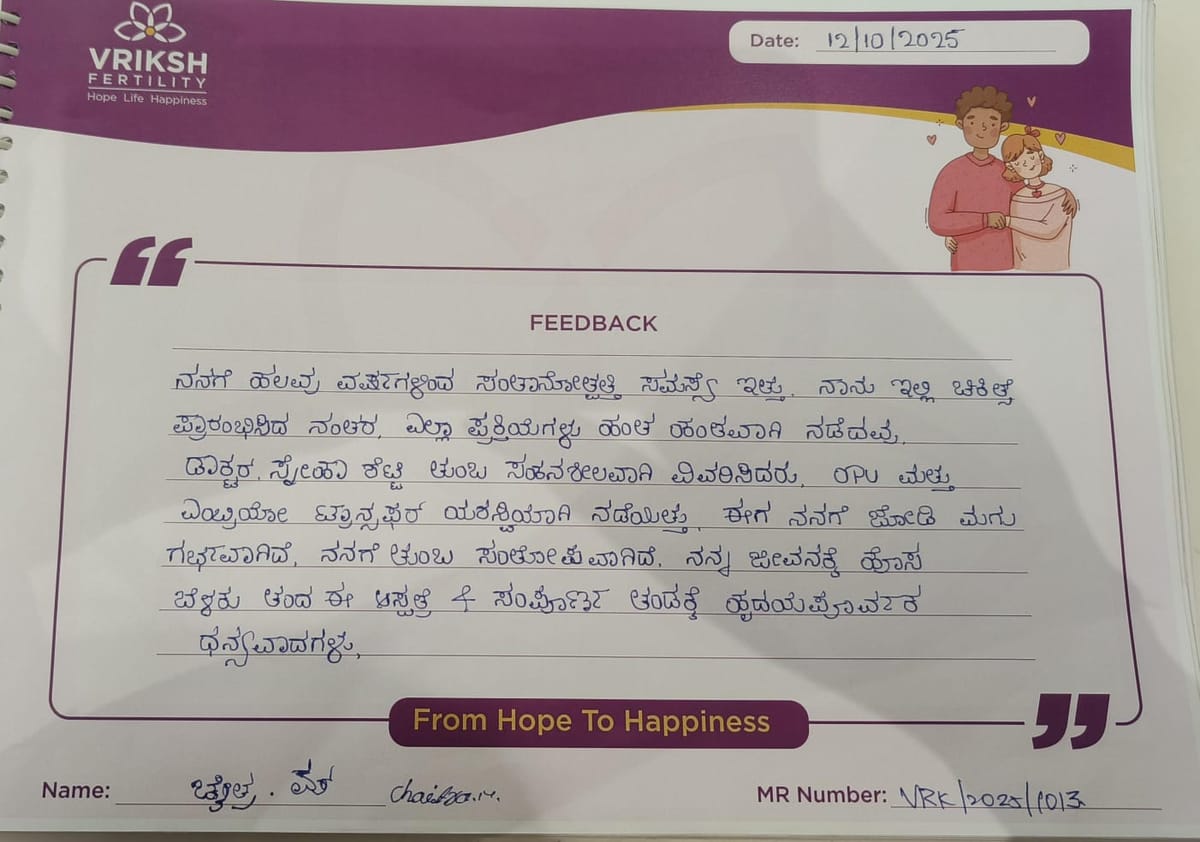 VRIKSH
FERTILITY
Hope Life Happiness
Date: 12/10/2025
FEEDBACK
ನನಗೆ ಹಲವು ವರ್ಷಗಳಿಂದ ಸಂತಾನೋತ್ಪತ್ತಿ ಸಮಸ್ಯೆ ಇತ್ತು. ನಾನು ಇಲ್ಲಿ ಚಿಕಿತ್ಸೆ
ಪ್ರಾರಂಭಿಸಿದ ನಂತರ, ಎಲ್ಲಾ ಪ್ರಕ್ರಿಯೆಗಳು ಹಂತ ಹಂತವಾಗಿ ನಡೆದವು.
ಡಾಕ್ಟರ್. ಸ್ನೇಹಾ ಶೆಟ್ಟಿ ತುಂಬ ಸಹನಶೀಲವಾಗಿ ವಿವರಿಸಿದರು. OPU ಮತ್ತು
ಎಂಬ್ರಿಯೋ ಟ್ರಾನ್ಸಫರ್ ಯಶಸ್ವಿಯಾಗಿ ನಡೆಯಿತ್ತು. ಈಗ ನನಗೆ ಜೋಡಿ ಮಗು
ಗರ್ಭವಾಗಿದೆ, ನನಗೆ ತುಂಬ ಸಂತೋಷವಾಗಿದೆ. ನನ್ನ ಜೀವನಕ್ಕೆ ಹೊಸ
ಬೆಳಕು ತಂದ ಈ ಆಸ್ಪತ್ರೆ & ಸಂಪೂರ್ಣ ತಂಡಕ್ಕೆ ಹೃದಯಪೂರ್ವಕ
ಧನ್ಯವಾದಗಳು,
From Hope To Happiness
Name: ಚೈತ್ರ. ಎಮ್ Chaitra.M.
MR Number: VRK/2025/1013